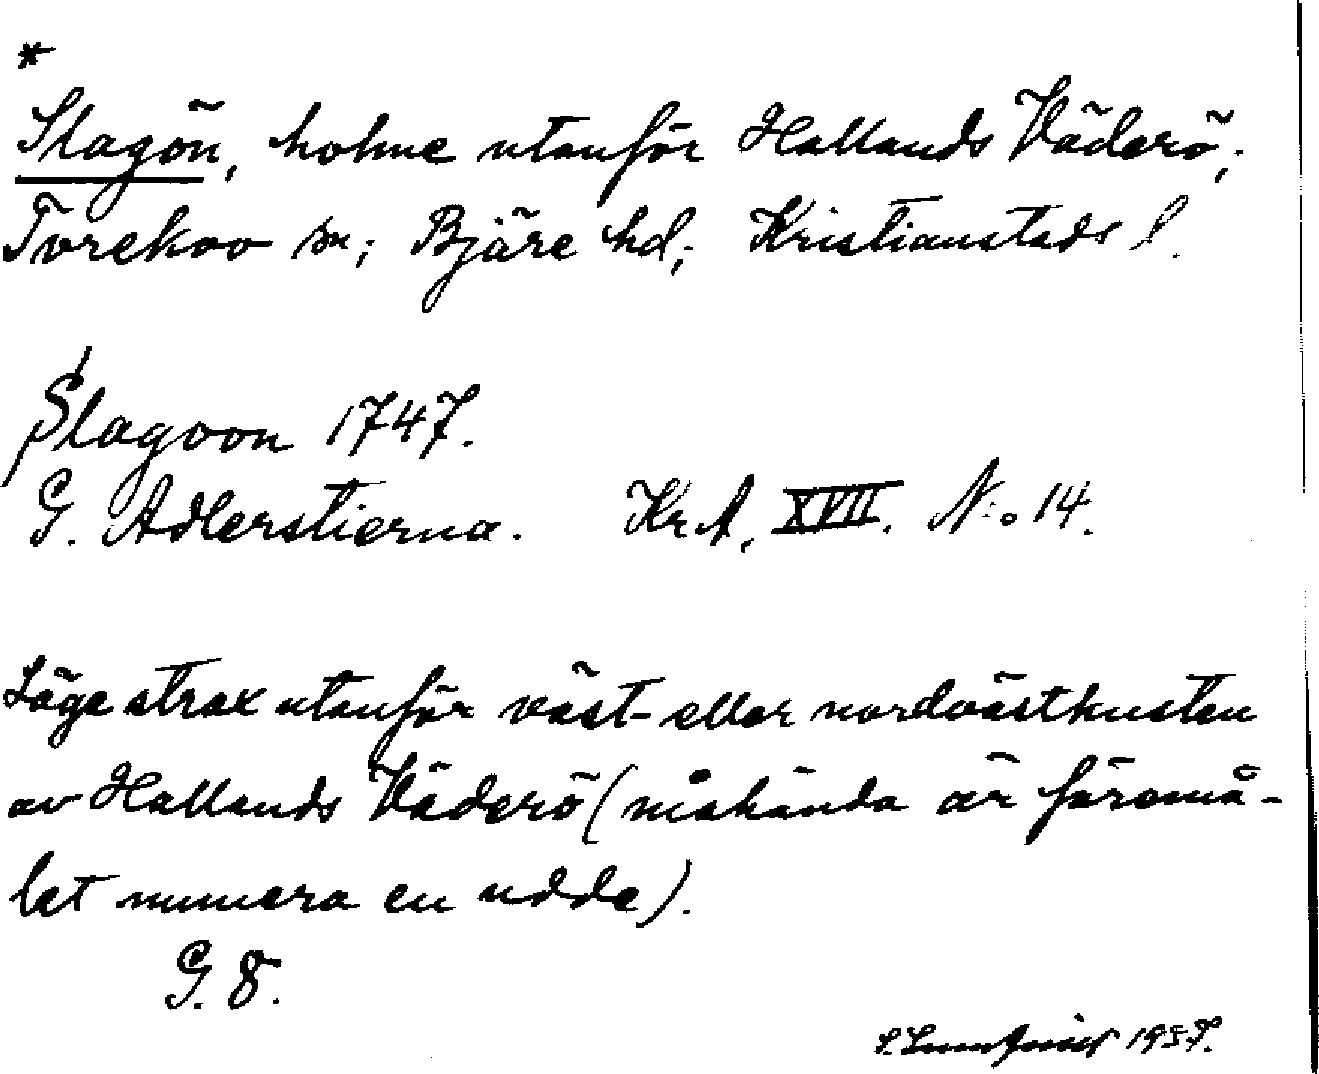 *
Slagön, holme utanför Hallands Väderö,;
Torekov sn; Bjäre hd,; Kristianstads l.
Slagoon 1747.
G. Adlerstierna. KrA, XVII. N:o 14.
Läge strax utanför väst- eller nordvästkusten
av Hallands Väderö (måhända är föremå-
let numera en udde).
G. 8.
1957.